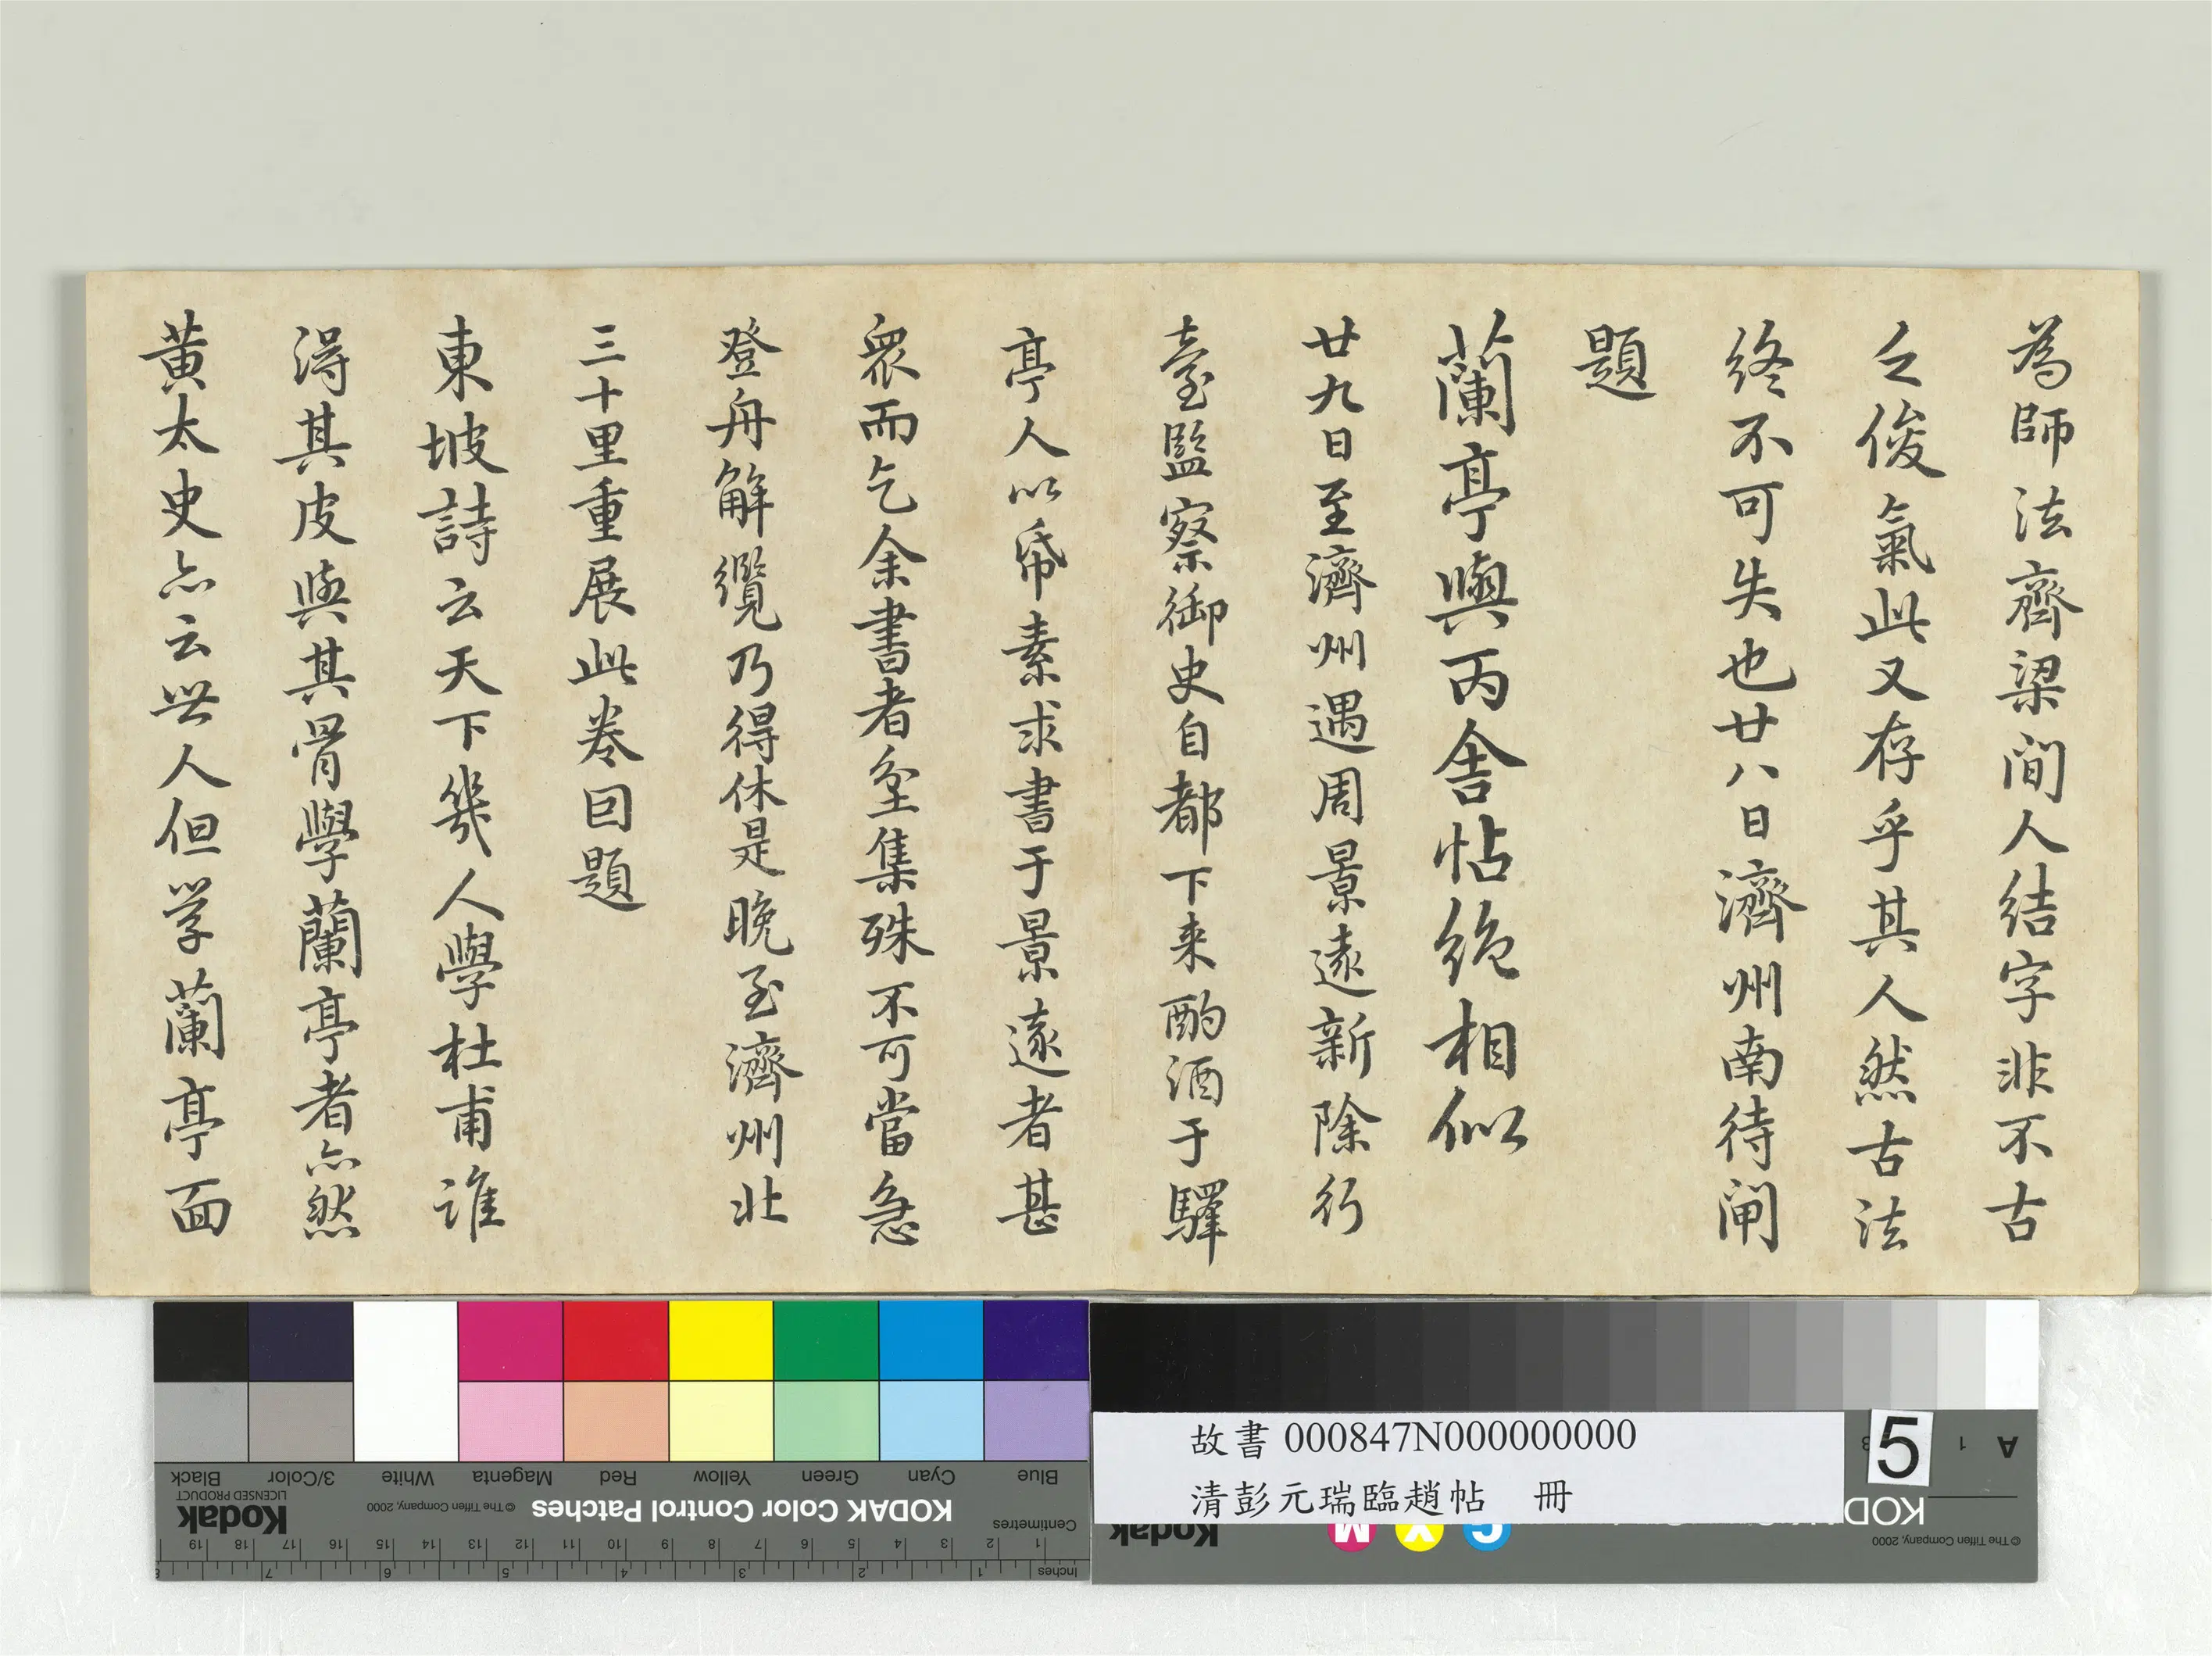 為師法齊梁間人結字非不古
之俊氣此又存乎其人然古法
終不可失也廿八日濟州南待閘
題
蘭亭與丙舍帖絶相似
廿九日至濟州遇周景遠新除行
臺監察御史自都下来酌酒于驛
亭人以帋素求書于景遠者甚
衆而乞余書者坌集殊不可當急
登舟解纜乃得休是晚至濟州北
三十里重展此卷囙題
東坡詩云天下幾人學杜甫誰
淂其皮與其骨學蘭亭者亦然
黄太史亦云世人但学蘭亭面
Blue
Cyan
Green
Yellow
Red
Magenta
White
3/Color
Black
KODAK Color Control Patches
© The Tiffen Company, 2000
Kodak
LICENSED PRODUCT
Centimetres
1 2 3 4 5 6 7 8 9 10 11 12 13 14 15 16 17 18 19
Inches
1 2 3 4 5 6 7 8
故書 000847N000000000
清彭元瑞臨趙帖 冊
5
A 1 3
KOD
© The Tiffen Company, 2000
C Y M
Kodak